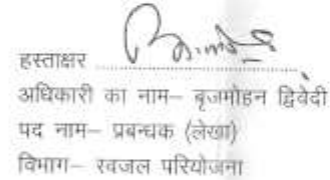 हस्ताक्षर
अधिकारी का नाम– बृजमोहन द्विवेदी
पद नाम– प्रबन्धक (लेखा)
विभाग– स्वजल परियोजना